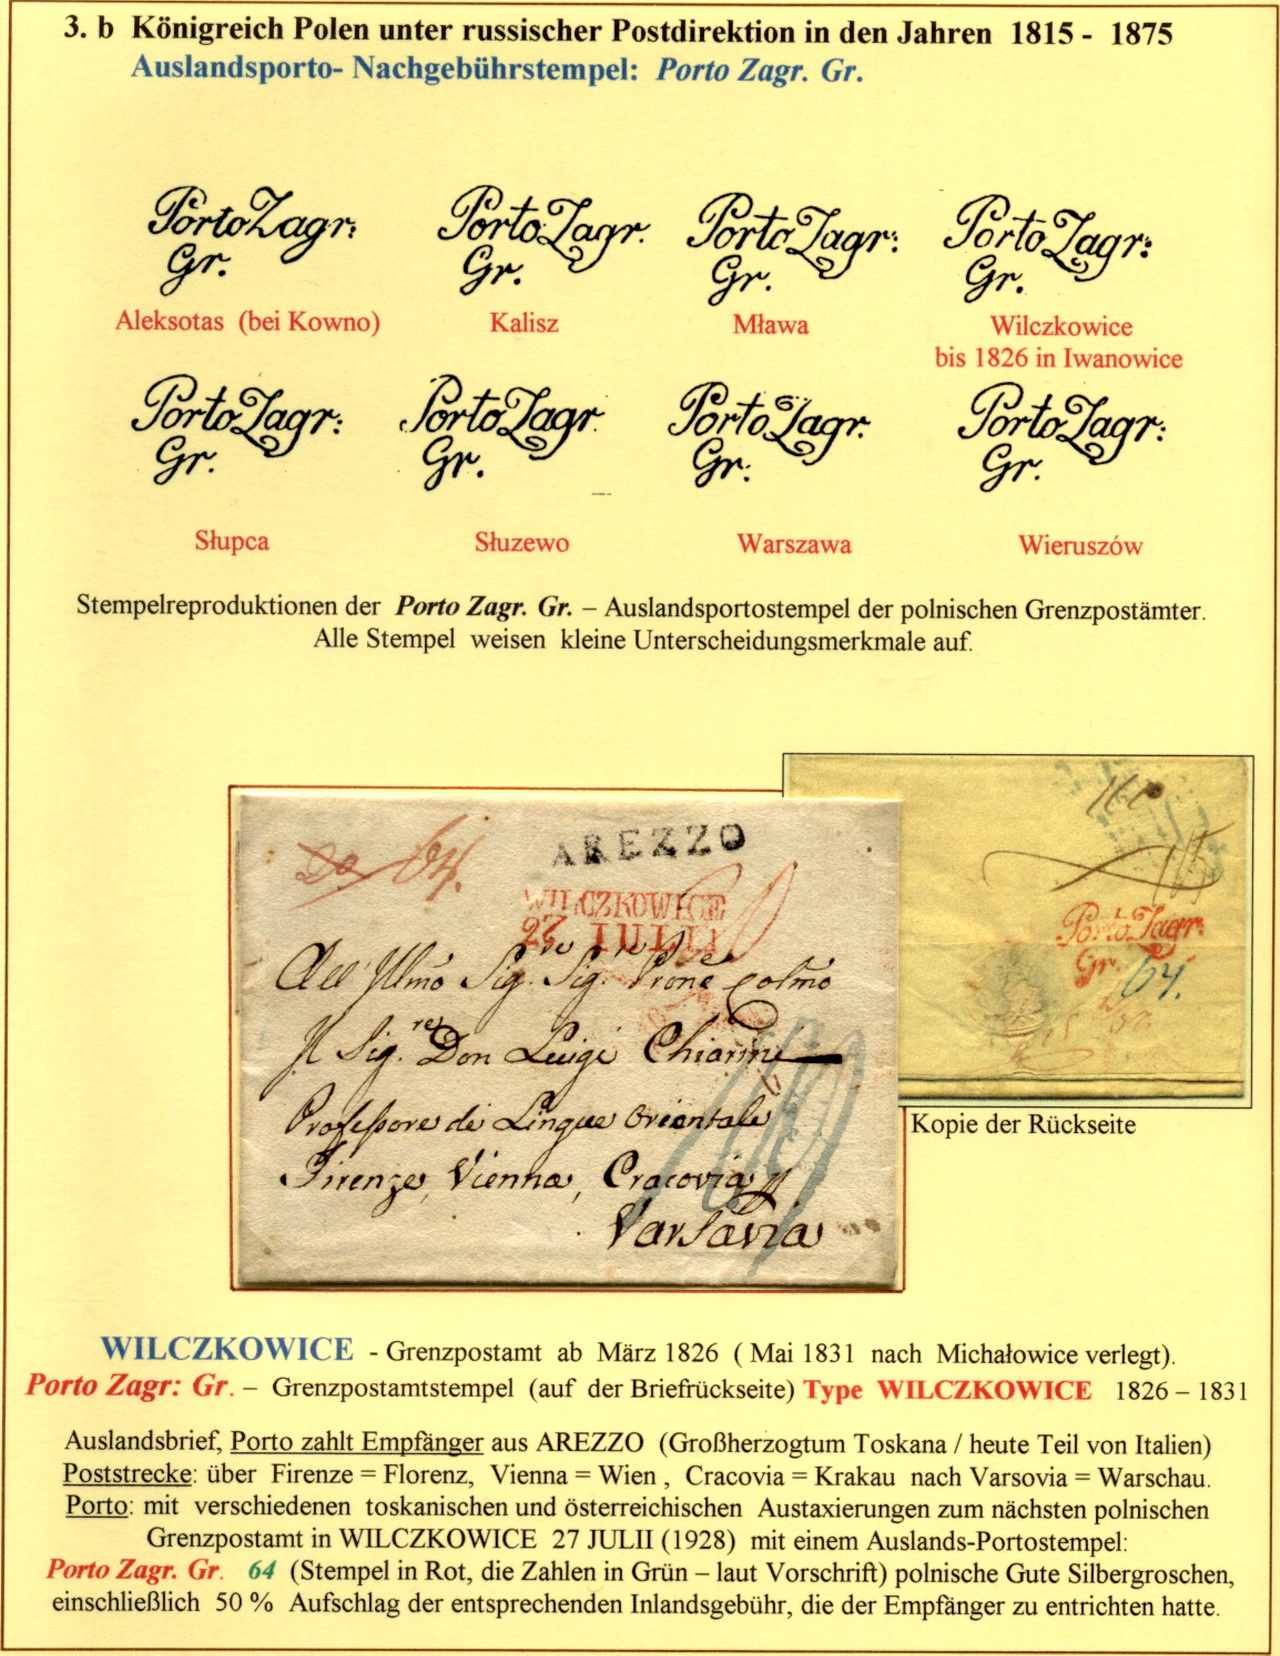 3. b Königreich Polen unter russischer Postdirektion in den Jahren 1815 - 1875
Auslandsporto- Nachgebührstempel: Porto Zagr. Gr.
Porto Zagr:
Gr.
Aleksotas (bei Kowno)
Porto Zagr.
Gr.
Kalisz
Porto Zagr:
Gr.
Mława
Porto Zagr:
Gr.
Wilczkowice
bis 1826 in Iwanowice
Porto Zagr:
Gr.
Słupca
Porto Zagr.
Gr.
Słuzewo
Porto Zagr.
Gr:
Warszawa
Porto Zagr:
Gr.
Wieruszów
Stempelreproduktionen der Porto Zagr. Gr. – Auslandsportostempel der polnischen Grenzpostämter.
Alle Stempel weisen kleine Unterscheidungsmerkmale auf.
64.
AREZZO
WILCZKOWICE
27 IULII
All' Illmo Sig.re Sig.re Prone Colmo
Il Sig.re Don Luigi Chiarini
Professore di Lingue Orientale
Firenze, Vienna, Cracovia
Varsavia
Porto Zagr:
Gr. 64.
Kopie der Rückseite
WILCZKOWICE - Grenzpostamt ab März 1826 ( Mai 1831 nach Michałowice verlegt).
Porto Zagr: Gr. – Grenzpostamtstempel (auf der Briefrückseite) Type WILCZKOWICE 1826 – 1831
Auslandsbrief, Porto zahlt Empfänger aus AREZZO (Großherzogtum Toskana / heute Teil von Italien)
Poststrecke: über Firenze = Florenz, Vienna = Wien , Cracovia = Krakau nach Varsovia = Warschau.
Porto: mit verschiedenen toskanischen und österreichischen Austaxierungen zum nächsten polnischen
Grenzpostamt in WILCZKOWICE 27 JULII (1928) mit einem Auslands-Portostempel:
Porto Zagr. Gr. 64 (Stempel in Rot, die Zahlen in Grün – laut Vorschrift) polnische Gute Silbergroschen,
einschließlich 50 % Aufschlag der entsprechenden Inlandsgebühr, die der Empfänger zu entrichten hatte.